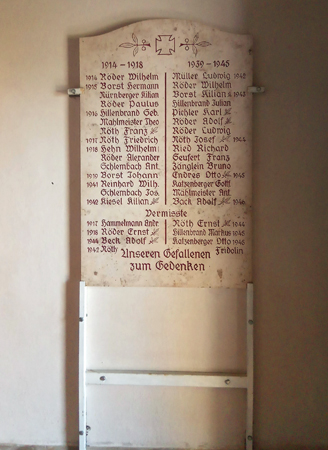 1914 – 1918 1939 – 1945
1914 Röder Wilhelm Müller Ludwig 1942
1915 Borst Hermann Röder Wilhelm
Nürnberger Kilian Borst Kilian 1943
Röder Paulus Hillenbrand Julian
1916 Hillenbrand Geb. Pichler Karl
Mahlmeister Theo Röder Adolf
Röth Franz Röder Ludwig
1917 Röth Friedrich Röth Josef 1944
1918 Hehn Wilhelm Ried Richard
Röder Alexander Seufert Franz
Schlembach Ant. Zänglein Bruno
Borst Johann Endres Otto 1945
1941 Reinhard Wilh. Katzenberger Gottl.
Schlembach Jos. Mahlmeister Ant.
1942 Kiesel Kilian Back Adolf
Vermisste
1917 Hammelmann Andr. Röth Ernst 1944
1918 Röder Ernst Hillenbrand Markus 1945
1944 Back Adolf Katzenberger Otto 1945
1942 Röth Fridolin
Unseren Gefallenen
zum Gedenken